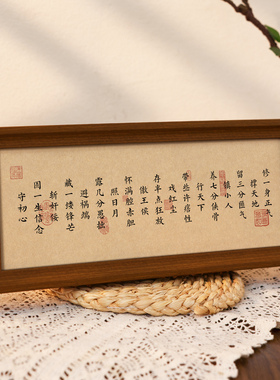 修一身正气
撑天地
留三分匪气
镇小人
养七分侠骨
行天下
帶些许痞性
戏红尘
存半点狂放
傲王侯
怀满腔赤胆
照日月
露几分愚拙
避祸端
藏一缕锋芒
斩奸佞
固一生信念
守初心